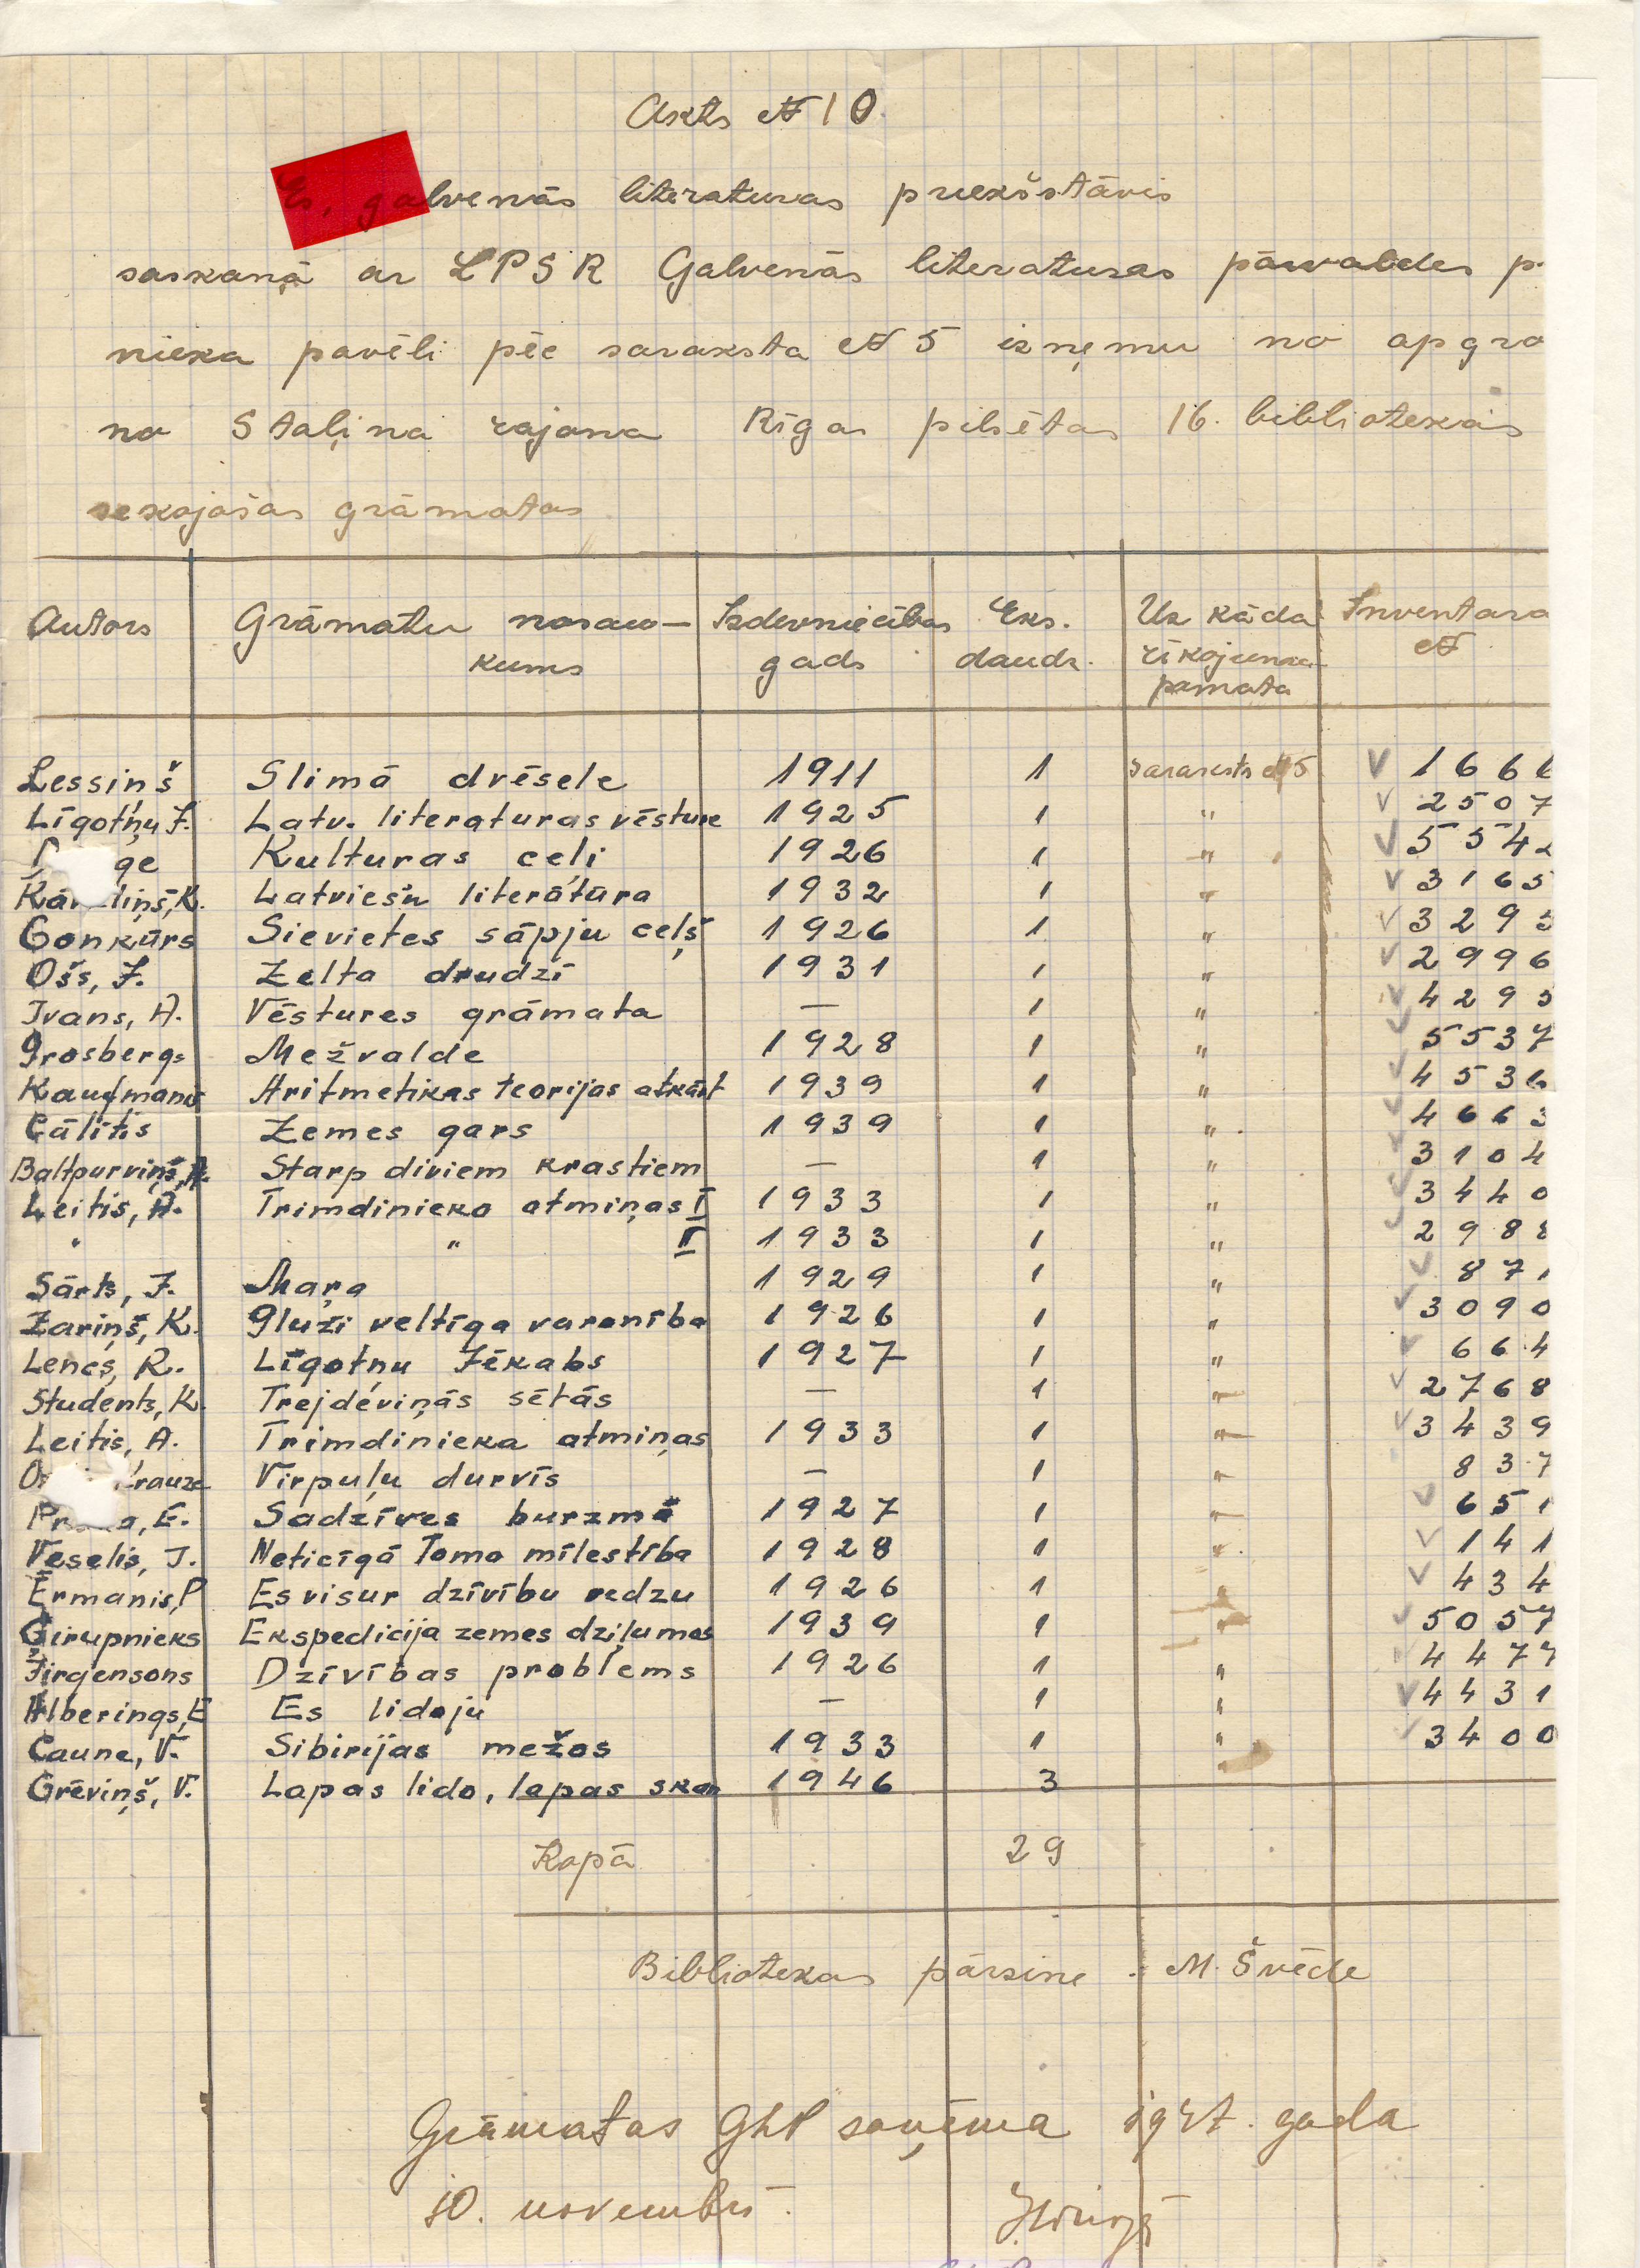 Akts № 10.
Es, galvenās literaturas priekšstāvis
saskaņā ar LPSR Galvenās literaturas pārvaldes p.
nieka pavēli pēc saraksta № 5 izņemu no apgro
no Staļina rajona Rīgas pilsētas 16. bibliotekas
sekojošas grāmatas
Autors Grāmatu nosau- Izdevniecības Eks. Uz kāda Inventara
kums gads daudz. rīkojuma №
pamata
Lessiņš Slimā dvēsele 1911 1 Saraksts № 5 V 166
Līgotņu J. Latv. literaturas vēsture 1925 1 " V 2507
ge Kulturas ceļi 1926 1 " V 554
Kār liņš, K. Latviešu literātūra 1932 1 " V 3165
Gonkūrs Sievietes sāpju ceļš 1926 1 " V 3295
Ošs, J. Zelta drudzī 1931 1 " V 2996
Ivans, A. Vēstures grāmata — 1 " V 4295
Grosbergs Mežvalde 1928 1 " V 5537
Kaufmanis Aritmetikas teorijas atkārt 1939 1 " V 4536
Cālītis Zemes gars 1939 1 " V 4663
Baltpurviņš, A. Starp diviem krastiem — 1 " V 3104
Leitis, A. Trimdinieka atmiņas I 1933 1 " V 3440
" " II 1933 1 " V 2988
Sārts, J. Maŗa 1929 1 " V 871
Zariņš, K. Gluži veltīga varonība 1926 1 " V 3090
Lencs, R. Līgotņu Jēkabs 1927 1 " V 664
Students, K. Trejdēviņās sētās — 1 " V 2768
Leitis, A. Trimdinieka atmiņas 1933 1 " V 3439
Os Krauze Virpuļu durvīs — 1 " 837
Pr a, E. Sadzīves burzmā 1927 1 " V 651
Veselis, J. Neticīgā Toma mīlestība 1928 1 " V 141
Ērmanis, P Es visur dzīvību redzu 1926 1 " V 434
Ģirupnieks Ekspedicija zemes dziļumos 1939 1 " V 5057
Jirgensons Dzīvības problems 1926 1 " V 4477
Alberings, E Es lidoju — 1 " V 4431
Caune, V. Sibirijas mežos 1933 1 " V 3400
Grēviņš, V. Lapas lido, lapas skan 1946 3 "
Kopā 29
Bibliotekas pārzine. M. Švēde
Grāmatas GLP saņēma 1947. gada
10. novembrī.